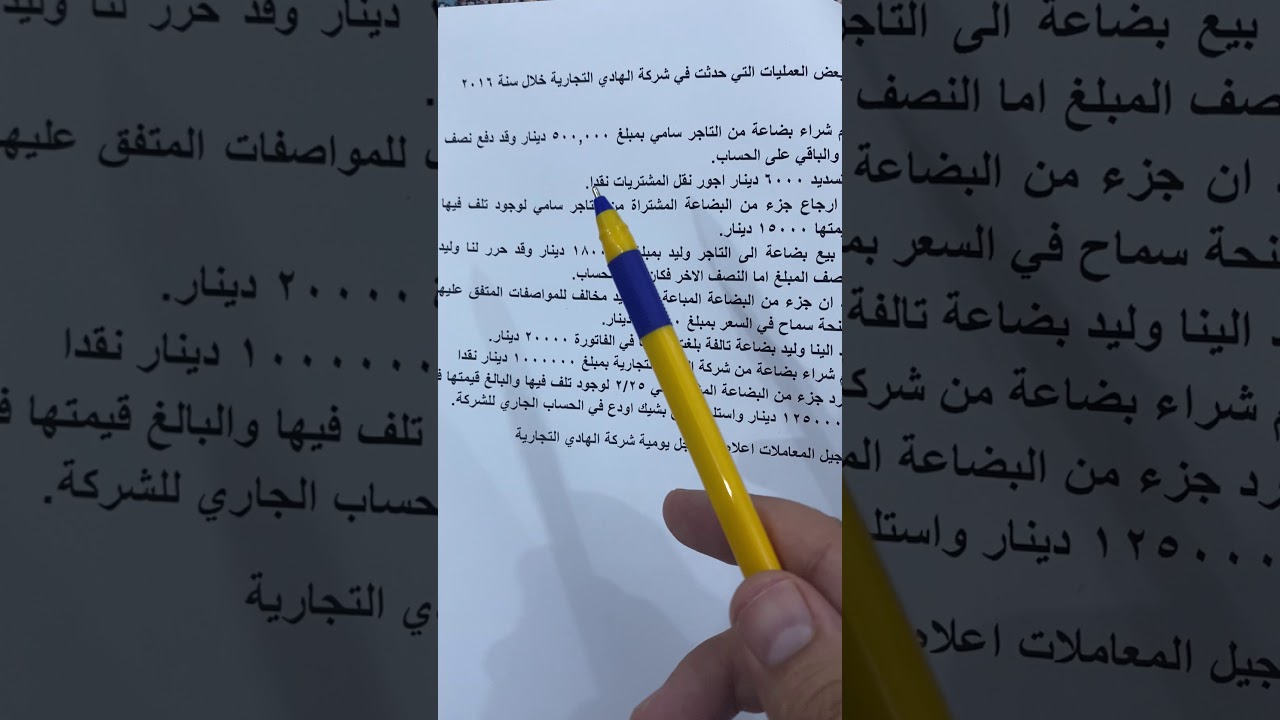 بعض العمليات التي حدثت في شركة الهادي التجارية خلال سنة ٢٠١٦
م شراء بضاعة من التاجر سامي بمبلغ ٥٠٠,٠٠٠ دينار وقد دفع نصف
والباقي على الحساب.
تسديد ٦٠٠٠ دينار اجور نقل المشتريات نقدا.
ارجاع جزء من البضاعة المشتراة من تاجر سامي لوجود تلف فيها
يمتها ١٥٠٠٠ دينار.
بيع بضاعة الى التاجر وليد دينار وقد حرر لنا وليد
صف المبلغ اما النصف الاخر فكان حساب.
ان جزء من البضاعة المباعة مخالف للمواصفات المتفق عليه
نحة سماح في السعر بمبلغ دينار.
د الينا وليد بضاعة تالفة في الفاتورة ٢٠٠٠٠ دينار.
م شراء بضاعة من شركة التجارية بمبلغ ١٠٠٠٠٠٠ دينار نقدا
رد جزء من البضاعة ٢/٢٥ لوجود تلف فيها والبالغ قيمتها ف
١٢٥٠٠٠ دينار بشيك اودع في الحساب الجاري للشركة.
جيل المعاملات اعلاه يومية شركة الهادي التجارية